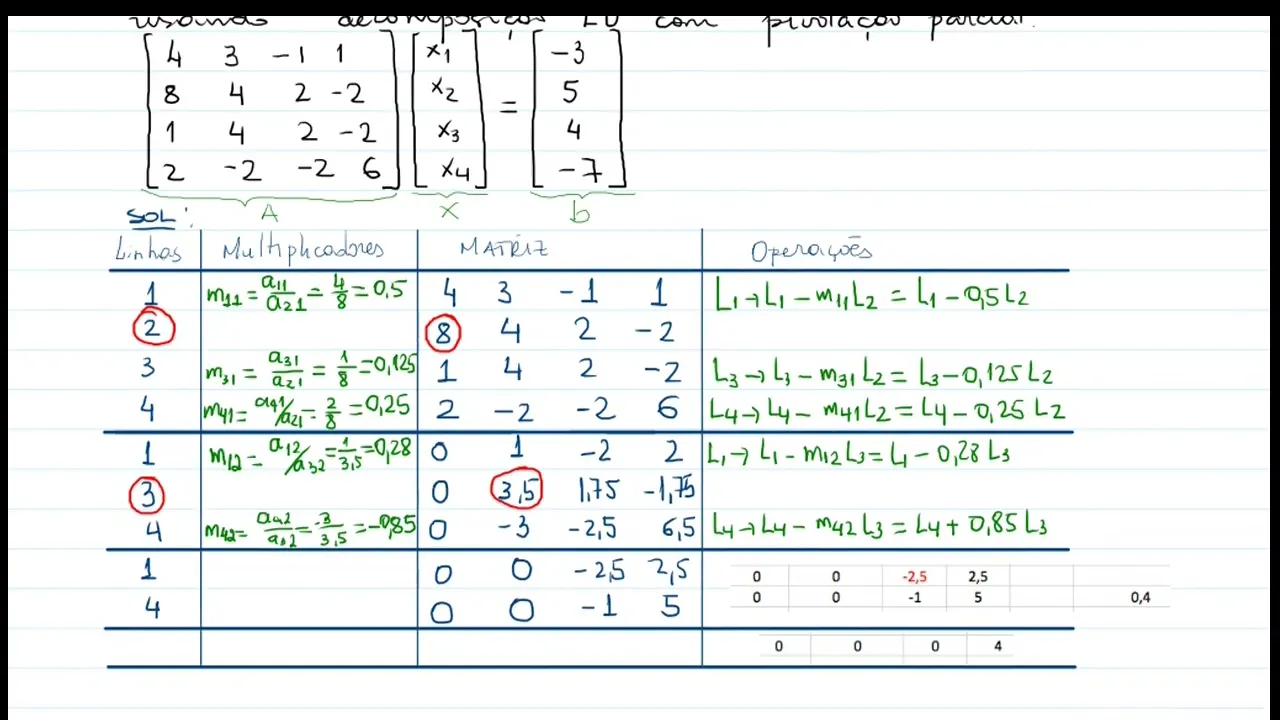 usando decomposição LU com pivotação parcial.
4 3 -1 1 x1 -3
8 4 2 -2 x2 = 5
1 4 2 -2 x3 4
2 -2 -2 6 x4 -7
A x b
SOL:
Linhas Multiplicadores MATRIZ Operações
1 m11 = a11/a21 = 4/8 = 0,5 4 3 -1 1 L1→L1 - m11L2 = L1 - 0,5L2
2 8 4 2 -2
3 m31 = a31/a21 = 1/8 = 0,125 1 4 2 -2 L3→L3 - m31L2 = L3 - 0,125L2
4 m41 = a41/a21 = 2/8 = 0,25 2 -2 -2 6 L4→L4 - m41L2 = L4 - 0,25L2
1 m12 = a12/a32 = 1/3,5 = 0,28 0 1 -2 2 L1→L1 - m12L3 = L1 - 0,28L3
3 0 3,5 1,75 -1,75
4 m42 = a42/a32 = -3/3,5 = -0,85 0 -3 -2,5 6,5 L4→L4 - m42L3 = L4 + 0,85L3
1 0 0 -2,5 2,5 0 0 -2,5 2,5
4 0 0 -1 5 0 0 -1 5 0,4
0 0 0 4